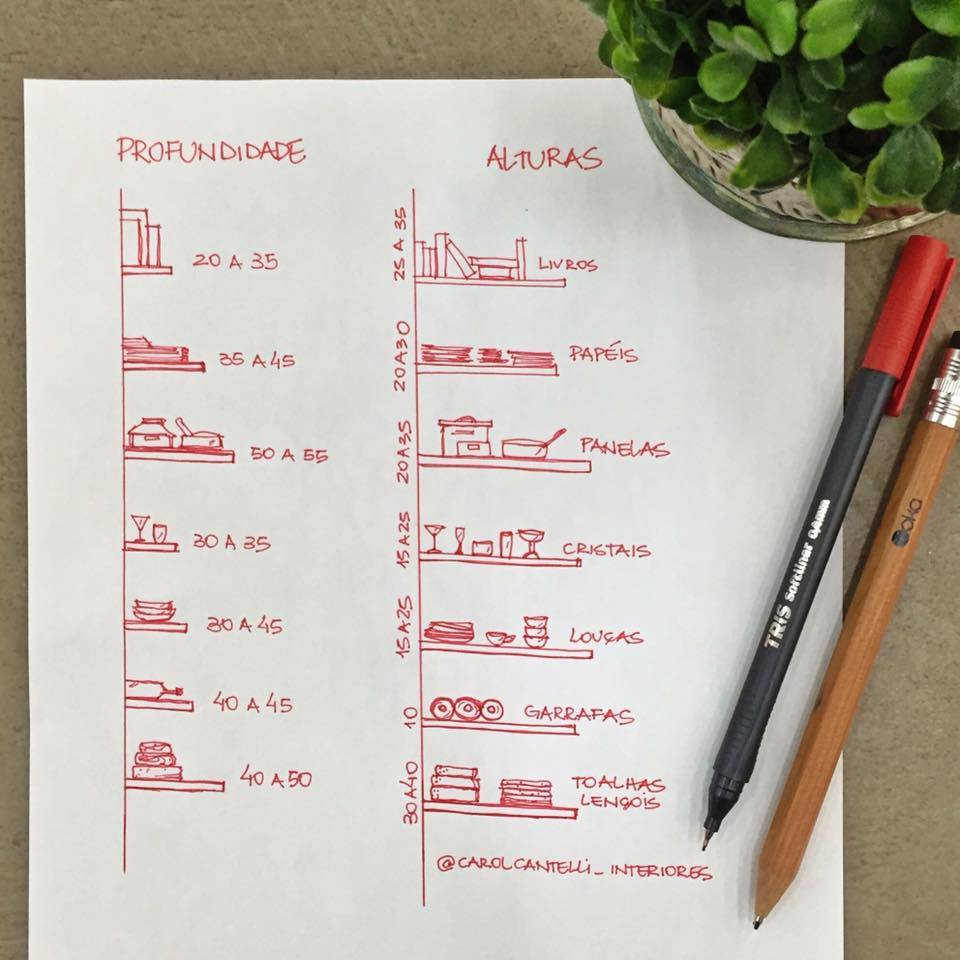 PROFUNDIDADE
20 A 35
35 A 45
50 A 55
30 A 35
30 A 45
40 A 45
40 A 50
ALTURAS
25 A 35
LIVROS
20 A 30
PAPÉIS
20 A 35
PANELAS
15 A 25
CRISTAIS
15 A 25
LOUÇAS
10
GARRAFAS
30 A 40
TOALHAS
LENÇOIS
@CAROLCANTELLI_INTERIORES
TRIS softliner 0,4mm